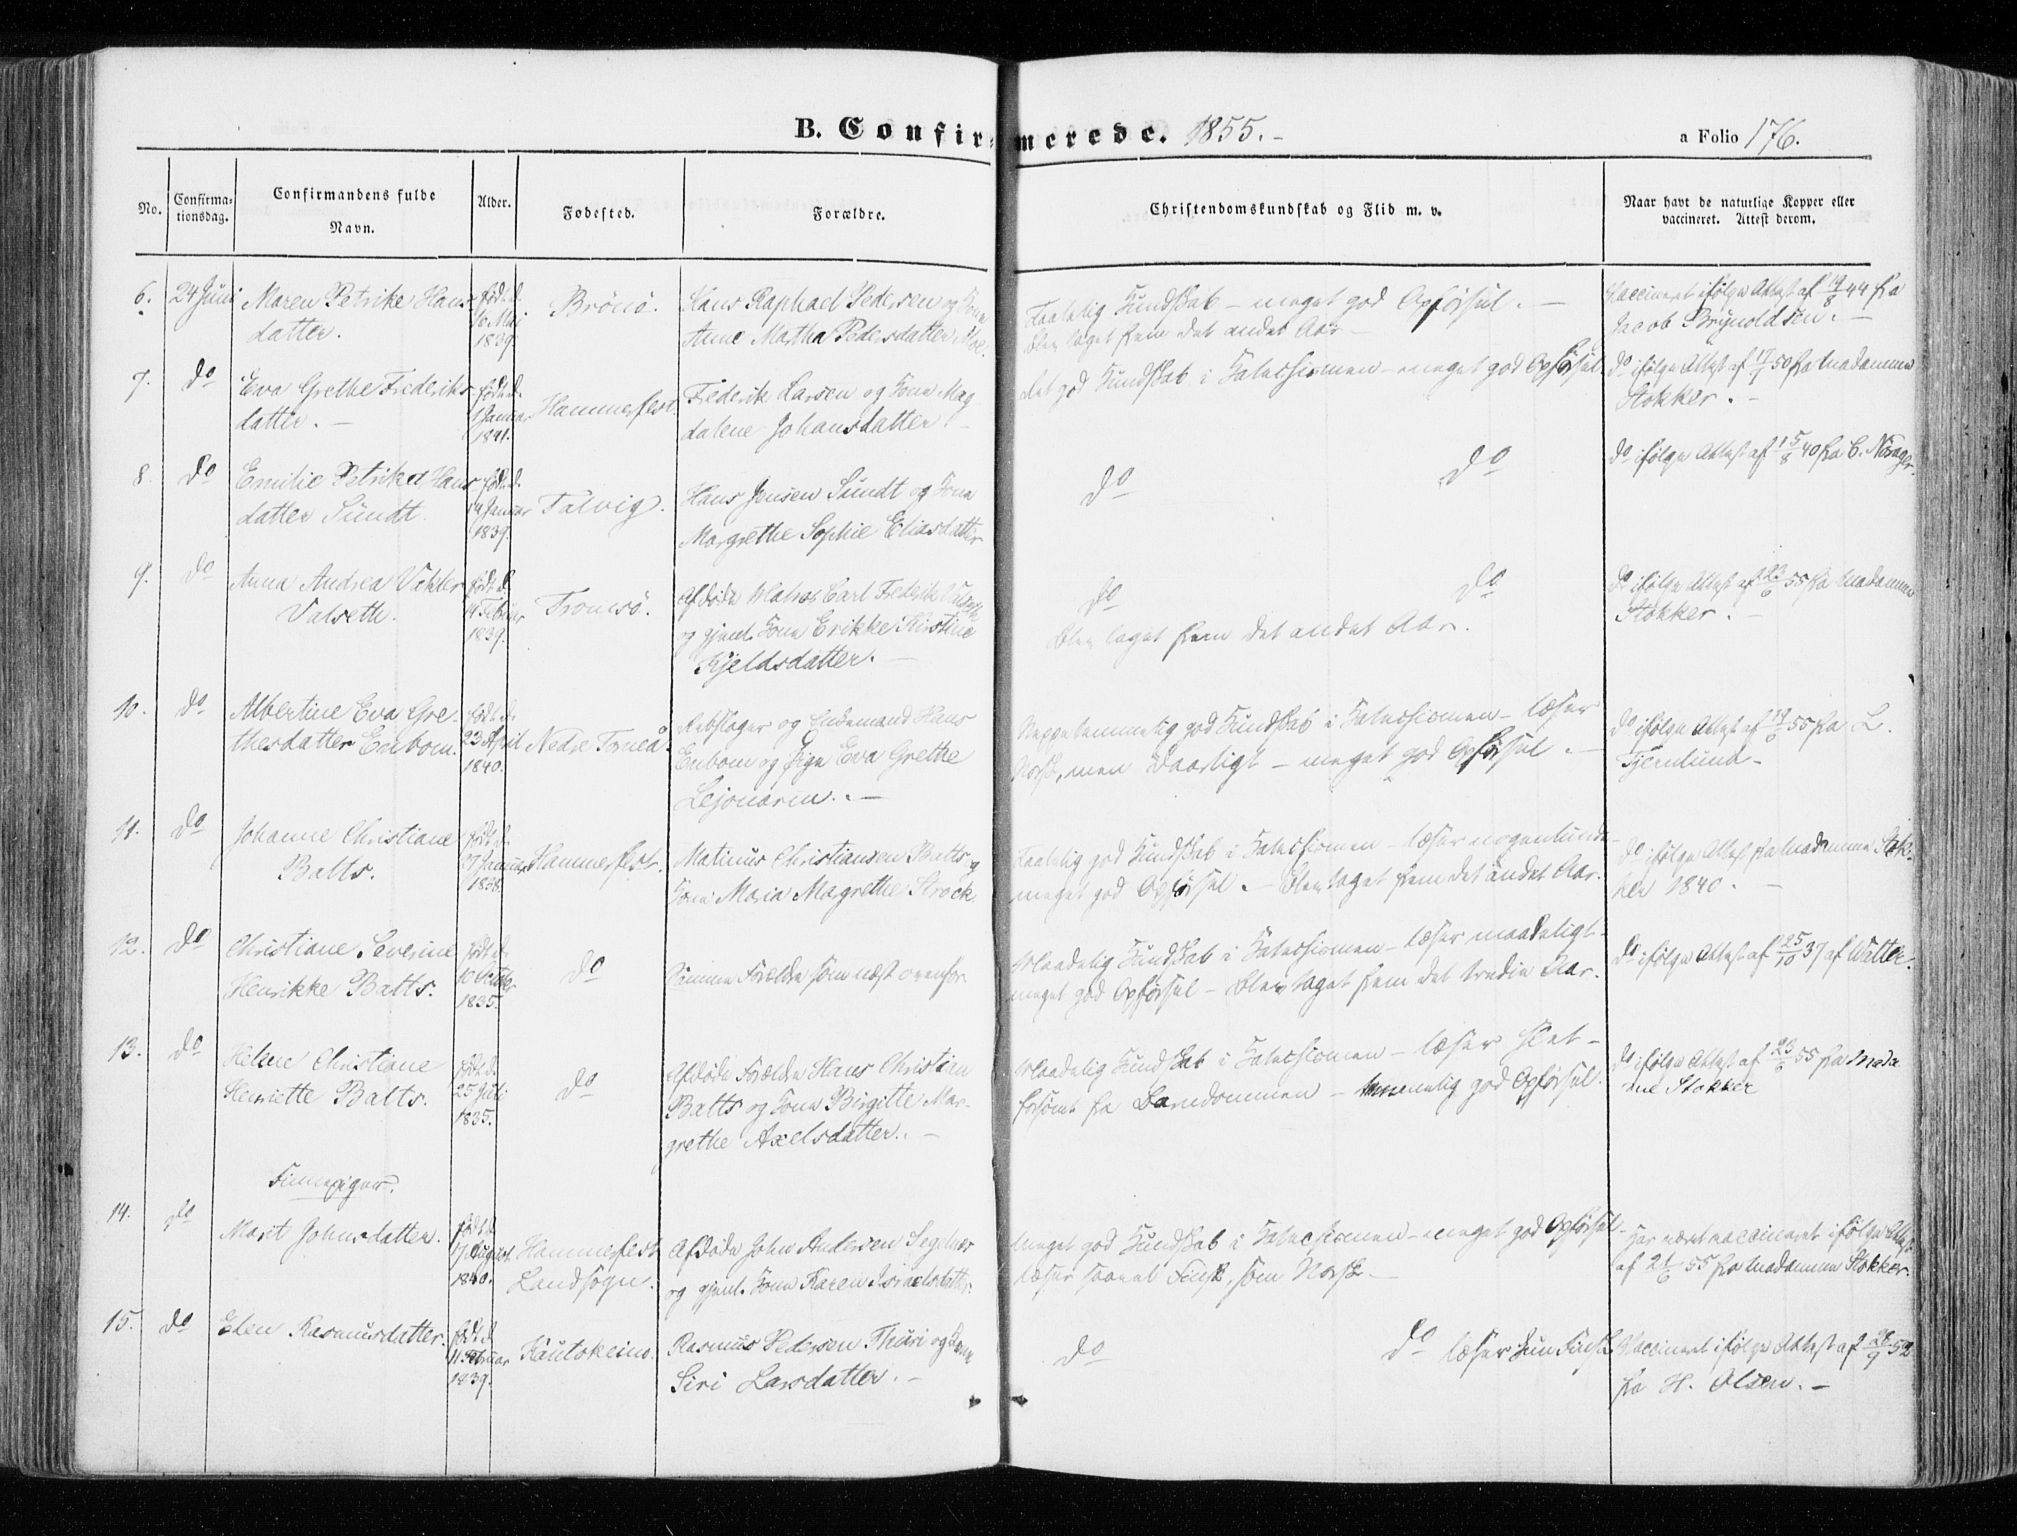 B. Confirmerede. 1855.-
a Folio 176.
No.
Confirma-
tionsdag.
Confirmandens fulde
Navn.
Alder.
Fødested.
Forældre.
Christendomskundskab og Flid m. v.
Naar havt de naturlige Kopper eller
vaccineret. Attest derom.
6.
24 Juni
Maren Petrike Hans
datter.
født d.
16 Mai
1839
Brönö.
Hans Raphael Pedersen og Kone
Anne Martha Pedersdatter Moe.
Taalelig Kundskab - meget god Opførsel. -
blev taget frem det andet Aar -
Vaccineret ifølge Attest af 19/8 44 fra
Jacob Brynoldsen. -
7.
do
Eva Grethe Frederiks
datter. -
født d.
1 Januar
1841.
Hammerfest.
Frederik Larsen og Kone Mag
dalene Johansdatter. -
det god Kundskab i Katechismen - meget god Opførsel
do ifølge Attest af 17/7 50 fra Madamme
Stokker. -
8.
do
Emilie Petrikа Hans
datter Sundt.
født d.
14 Januar
1839.
Talvig.
Hans Jensen Sundt og Kone
Margrethe Sophie Eliasdatter
do
do
do ifølge Attest af 15/8 40 fra C. Norager.
9.
do
Anna Andrea
Valseth.
født d.
4 Februar
1839.
Tromsö.
Afdøde Matros Carl Frederik Valseth
og gjenl. Kone Erikke Kirstine
Kjeldsdatter. -
do
do
blev taget frem det andet Aar.
do ifølge Attest af 23/6 55 fra Madamme
Stokker. -
10.
do
Albertine Eva Gre-
thesdatter Enbom.
født d.
23 April
1840.
Nedre Torneå.
Rebslager og Enkemand Hans
Enbom og Pige Eva Grethe
Lejonarm. -
Neppe temmelig god Kundskab i Katechismen - læser
Norsk, men daarligt - meget god Opførsel. -
do ifølge Attest af 19/6 55 fra L.
Fjernlund -
11.
do
Johanne Christiane
Batts.
født d.
27 Januar
1838.
Hammerfest.
Matinus Christiansen Batts og
Kone Maria Magrethe Strock.
Taalelig god Kundskab i Katechismen - læser nogenlunde -
meget god Opførsel. - blev taget frem det andet Aar.
do ifølge Attest fra Madamme Stok-
ker 1840. -
12.
do
Christiane Severine
Henrikke Batts.
født d.
10 October
1835.
do
Samme Forældre som næst ovenfor
Maadelig Kundskab i Katechismen - læser maadeligt -
meget god Opførsel - blev taget frem det tredie Aar.
do ifølge Attest af 25/10 37 af Walter.
13.
do
Helene Christiane
Henriette Batts.
født d.
25 Juli
1835.
do
Afdøde Forældre Hans Christian
Batts og Kone Birgitte Mar-
grethe Axelsdatter. -
Maadelig Kundskab i Katechismen - læser slet -
forsømt fra Barndommen - temmelig god Opførsel.
do ifølge Attest af 23/6 55 fra Mada
me Stokker
Finnepiger.
14.
do
Marit Johnsdatter.
født d.
17 August
1840.
Hammerfest
Landsogn.
Afdøde John Andersen Segelnes
og gjenl. Kone Karen Israelsdatter.
Meget god Kundskab i Katechismen - meget god Opførsel -
læser saavel Finsk, som Norsk -
Har været vaccineret ifølge Attest
af 21/6 55 fra Madamme Stokker.
15.
do
Elen Rasmusdatter.
født d.
11 Februar
1839.
Kautokeino.
Rasmus Pedersen Thuri og Kone
Siri Larsdatter. -
do
do læser kun Finsk
Vaccineret ifølge Attest af 28/9 52
fra H. Olsen. -